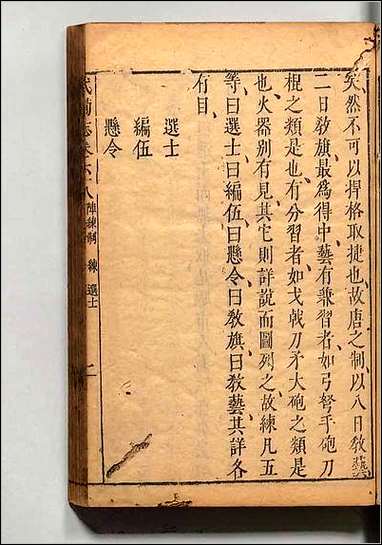 矣然不可以捍格取捷也故唐之制以八日敎藝
二日敎旗最爲得中藝有兼習者如弓弩手砲刀
棍之類是也有分習者如戈戟刀矛大砲之類是
也火器别有見其它則詳說而圖列之故練凡五
等曰選士曰編伍曰懸令曰敎旗曰敎藝其詳各
有目
選士
編伍
懸令
武備志卷六十八 陣練制 練 選士 二